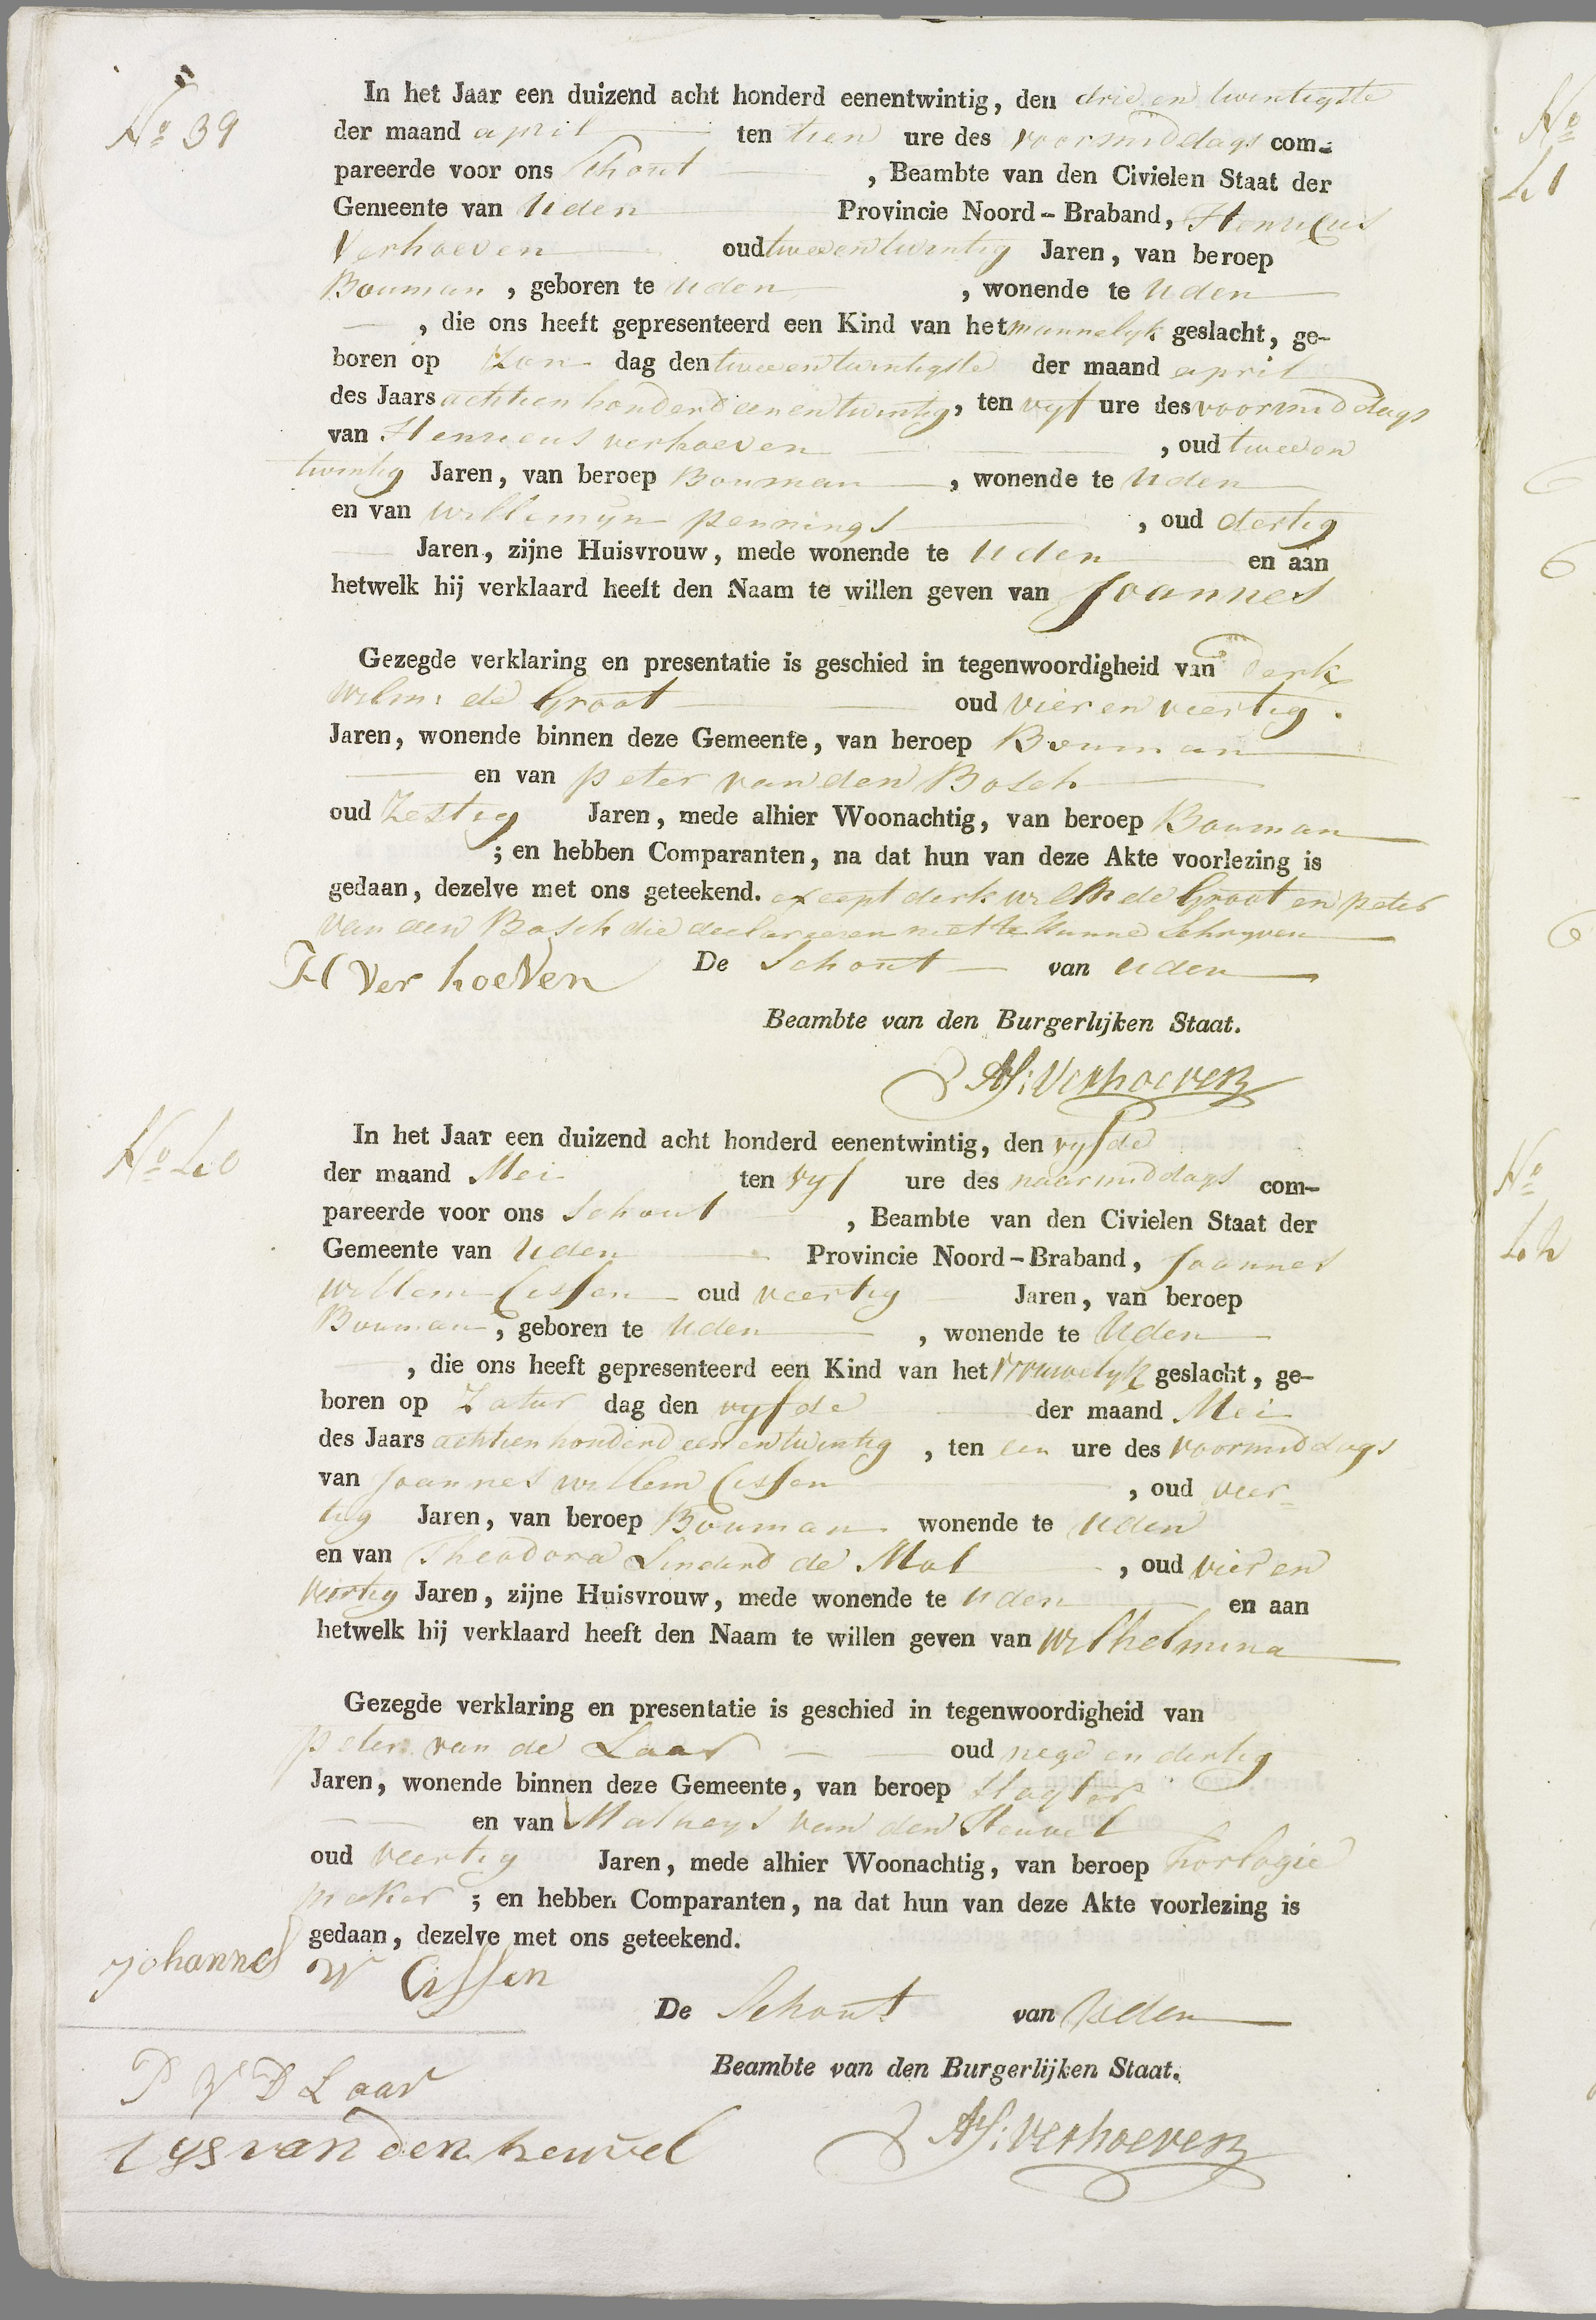 No 39
In het Jaar een duizend acht honderd eenentwintig, den drie en twintigste
der maand april ten tien ure des voormiddags com-
pareerde voor ons Schout , Beambte van den Civielen Staat der
Gemeente van Uden Provincie Noord-Braband, Henricus
Verhoeven oud tweeentwintig Jaren, van beroep
Bouman , geboren te Uden , wonende te Uden
, die ons heeft gepresenteerd een Kind van het mannelyk geslacht, ge-
boren op Zon dag den tweeentwintigste der maand april
des Jaars achtien honderd eenentwintig, ten vyf ure des voormiddags
van Henricus verhoeven , oud tweeen
twintig Jaren, van beroep Bouman , wonende te Uden
en van willemyn pennings , oud dertig
Jaren, zijne Huisvrouw, mede wonende te Uden en aan
hetwelk hij verklaard heeft den Naam te willen geven van Joannes
Gezegde verklaring en presentatie is geschied in tegenwoordigheid van Derk
wilm: de Groot oud vier en veertig.
Jaren, wonende binnen deze Gemeente, van beroep Bouman
en van peter van den Bosch
oud Zestig Jaren, mede alhier Woonachtig, van beroep Bouman
; en hebben Comparanten, na dat hun van deze Akte voorlezing is
gedaan, dezelve met ons geteekend. except derk wilm de Groot en peter
van den Bosch die declareren niet te kunne Schryven
H Ver hoeven De Schout van Uden
Beambte van den Burgerlijken Staat.
Verhoeven
No 40
In het Jaar een duizend acht honderd eenentwintig, den vyfde
der maand Mei ten vyf ure des naarmiddags com-
pareerde voor ons Schout , Beambte van den Civielen Staat der
Gemeente van Uden Provincie Noord-Braband, Joannes
willem Cissen oud veertig Jaren, van beroep
Bouman , geboren te Uden , wonende te Uden
, die ons heeft gepresenteerd een Kind van het vrouwelyk geslacht, ge-
boren op Zatur dag den vyfde der maand Mei
des Jaars achtien honderd eenentwintig , ten een ure des voormiddags
van Joannes willem Cissen , oud veer-
tig Jaren, van beroep Bouman wonende te Uden
en van Theodora Linderd de Mol , oud vier en
veertig Jaren, zijne Huisvrouw, mede wonende te Uden en aan
hetwelk hij verklaard heeft den Naam te willen geven van Wilhelmina
Gezegde verklaring en presentatie is geschied in tegenwoordigheid van
peter van de Laar oud nege en dertig
Jaren, wonende binnen deze Gemeente, van beroep Slagter
en van Matheys van den Heuvel
oud veertig Jaren, mede alhier Woonachtig, van beroep horlogie
maker ; en hebben Comparanten, na dat hun van deze Akte voorlezing is
gedaan, dezelve met ons geteekend.
Johannes W Cissen
De Schout van Uden
P V D Laar
Beambte van den Burgerlijken Staat.
tys van den heuvel
Verhoeven
No
41
No
42